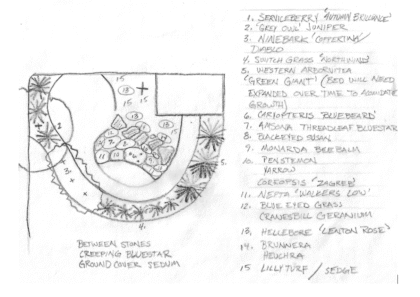 1. SERVICEBERRY 'AUTUMN BRILLIANCE'
2. 'GREY OWL' JUNIPER
3. NINEBARK 'COPPERTINA'/
DIABLO
4. SWITCH GRASS 'NORTHWIND'
5. WESTERN ARBORVITEA
'GREEN GIANT' (BED WILL NEED
EXPANDED OVER TIME TO
GROWTH)
6. CARYOPTERIS 'BLUEBEARD'
7. AMSONA THREADLEAF BLUESTAR
8. BLACKEYED SUSAN
9. MONARDA BEEBALM
10. PENSTEMON
YARROW
COREOPSIS 'ZAGREB'
11. NEPTA 'WALKERS LOW'
12. BLUE EYED GRASS
CRANESBILL GERANIUM
13. HELLEBORE 'LENTON ROSE'
14. BRUNNERA
HEUCHRA
15 LILLYTURF / SEDGE
15
13
15
15
15
2
3
5.
4.
BETWEEN STONES
CREEPING BLUESTAR
GROUND COVER SEDUM